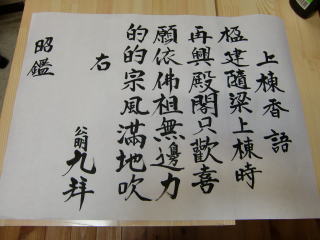 上棟香語
楹建隨梁上棟時
再興殿閣只歡喜
願依佛祖無邊力
的的宗風滿地吹
右
公明九拜
昭鑑